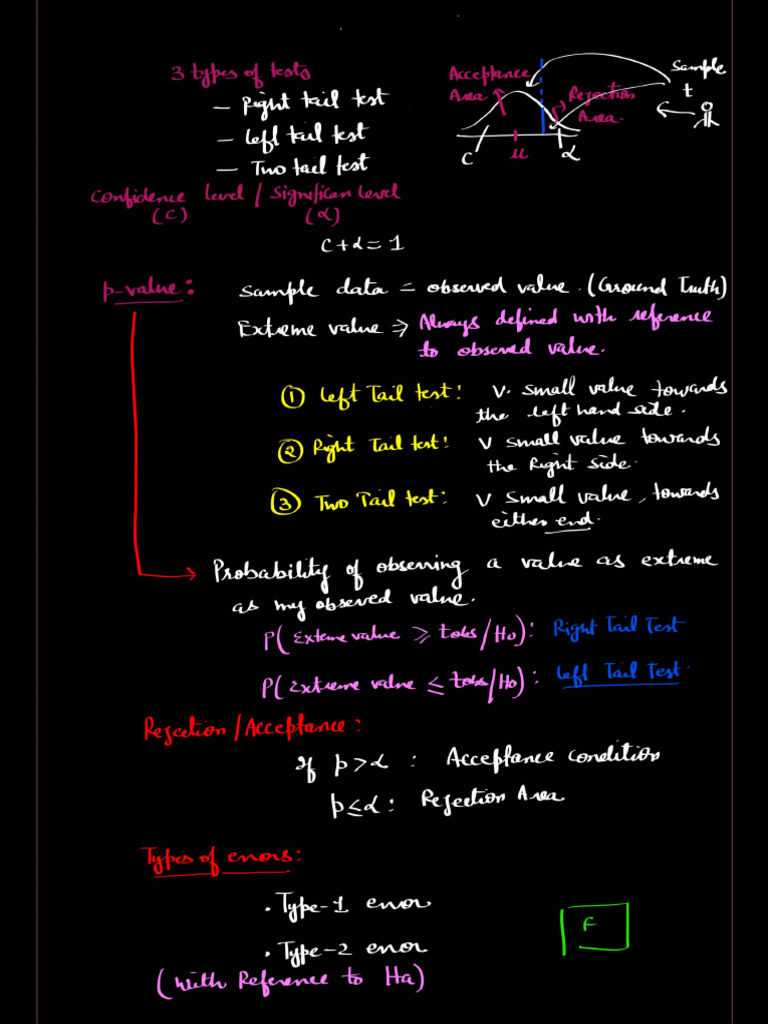 3 types of tests
– Right tail test
– Left tail test
– Two tail test
Acceptance
Area
Rejection
Area.
Sample
t
C
μ
α
Confidence level / Significan level
(C) (α)
C + α = 1
p-value:
Sample data = observed value. (Ground Truth)
Extreme value ⇒ Always defined with reference
to observed value.
① Left Tail test: V. small value towards
the left hand side.
② Right Tail test: V small value towards
the Right side.
③ Two Tail test: V small value, towards
either end.
Probability of observing a value as extreme
as my observed value.
P(Exteme value ≥ tobs/Ho): Right Tail Test
P(Extreme value ≤ tobs/Ho): Left Tail Test.
Rejection/Acceptance:
If p>α : Acceptance condition
p≤α: Rejection Area
Types of errors:
• Type-1 error
• Type-2 error
(with Reference to Ha)
F